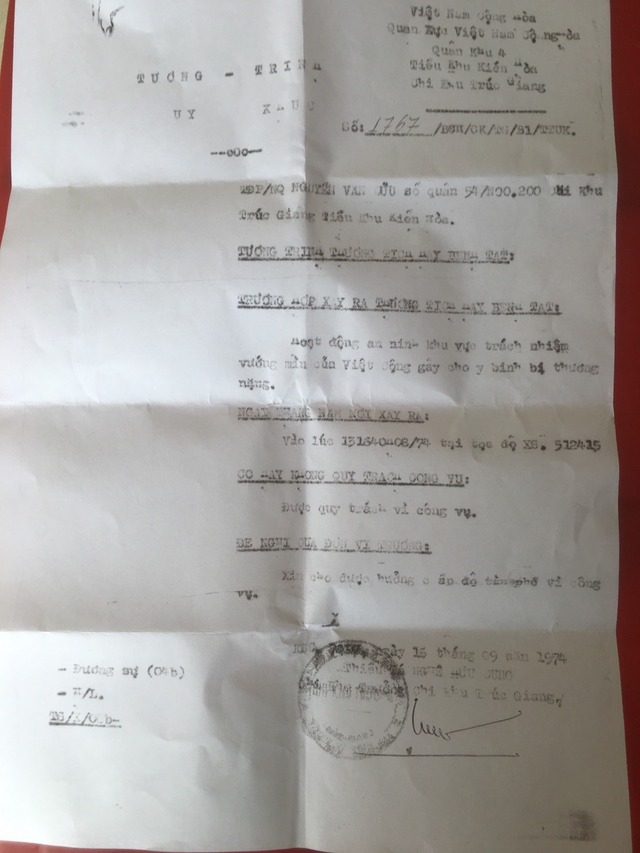 Việt Nam Cộng Hòa
Quân Lực Việt Nam Cộng Hòa
Quân Khu 4
Tiểu Khu Kiến Hòa
Chi Khu Trúc Giang
TƯỜNG - TRÌNH
UY KHÚC
---o0o---
Số: 1767 /BCH/CK/TG/B1/TTUK.
NGUYỄN VĂN CỬU số quân 54/NOO.200 Chi Khu
Trúc Giang Tiểu Khu Kiến Hòa.
TƯỜNG TRÌNH THƯƠNG TÍCH HAY BỊNH TẬT:
TRƯỜNG HỢP XẢY RA THƯƠNG TÍCH HAY BỊNH TẬT:
Hoạt động an ninh khu vực trách nhiệm
vướng mìn của Việt Cộng gây cho y binh bị thương
nặng.
NGÀY THÁNG NĂM NƠI XẢY RA:
Vào lúc 131640H08/74 tại tọa độ XS. 512415
CÓ HAY KHÔNG QUY TRÁCH CÔNG VỤ:
Được quy trách vì công vụ.
ĐỀ NGHỊ CỦA ĐƠN VỊ TRƯỞNG:
Xin cho được hưởng cấp độ tàn phế vì công
vụ.
ngày 15 tháng 09 năm 1974
Thiếu Tá HỮU DUNG
Chi Khu Trưởng Chi Khu Trúc Giang,
- Đương sự (04b)
- H/L.